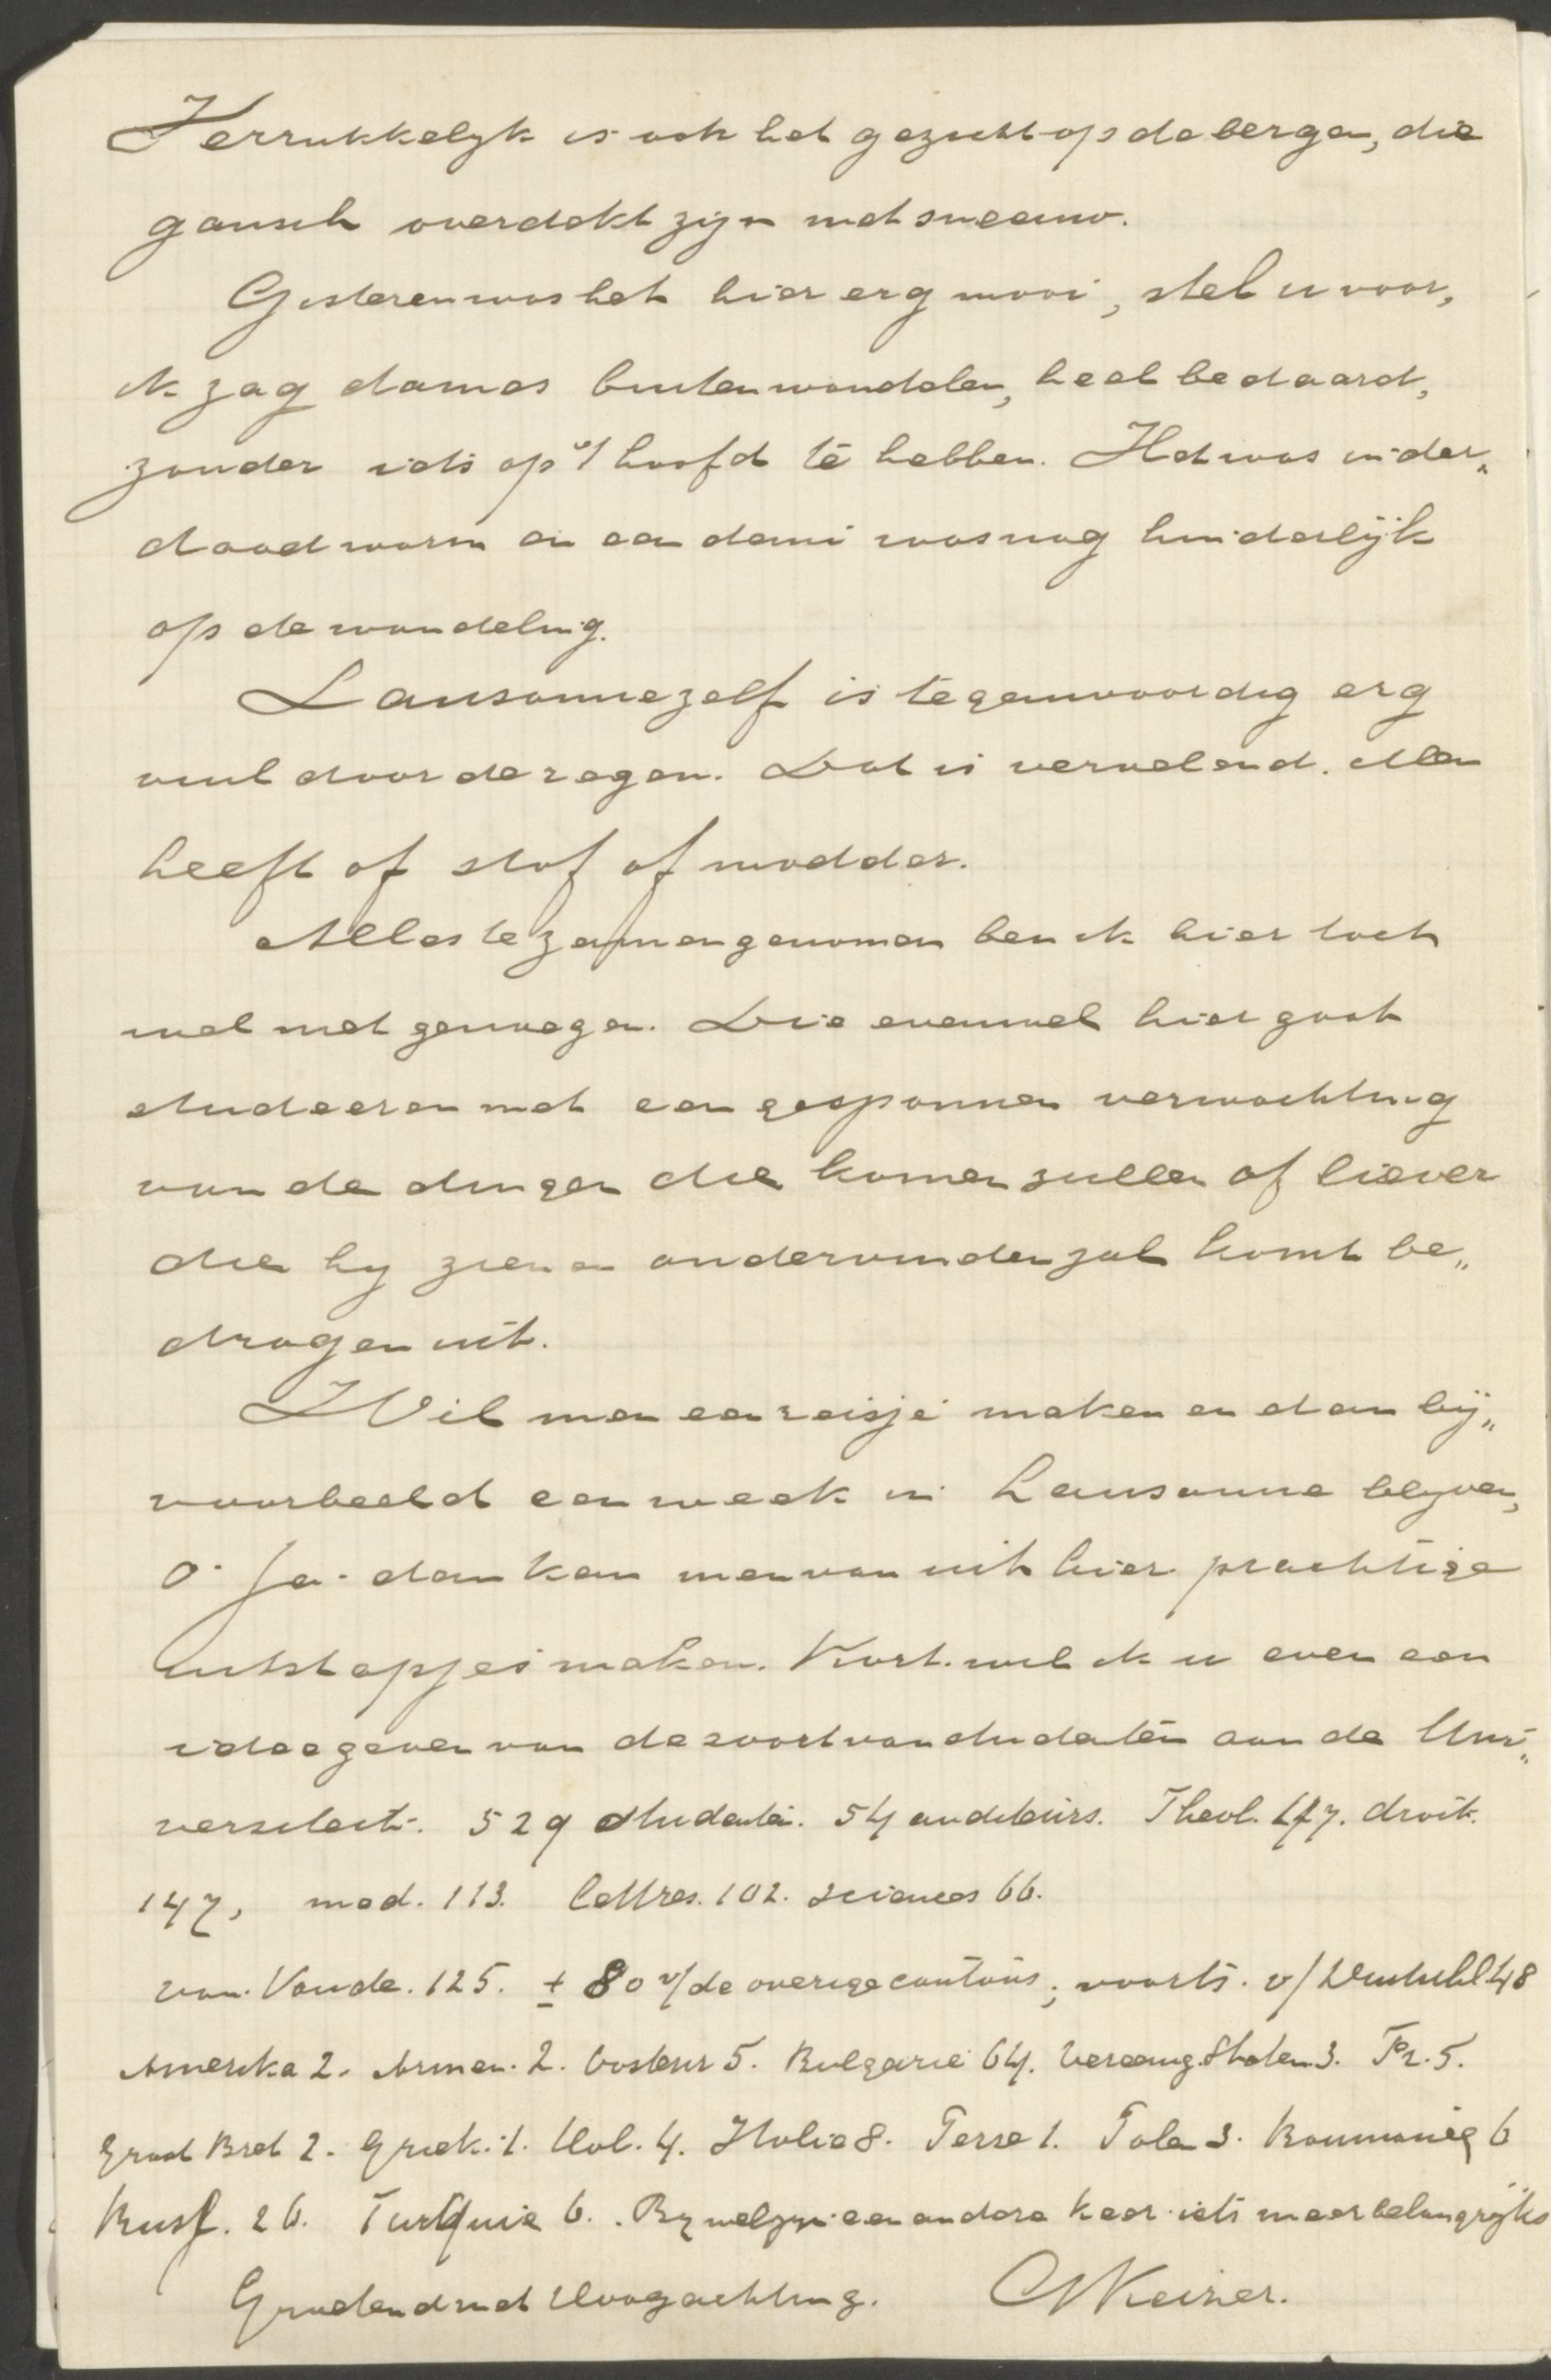 Verrukkelyk is ook het gezicht op de bergen, die
gansch overdekt zijn met sneeuw.
Gisteren was het hier erg mooi, stel u voor,
ik zag dames buiten wandelen, heel bedaard,
zonder iets op 't hoofd te hebben. Het was inder„
daad warm en een demi was nog hinderlijk
op de wandeling.
Lausanne zelf is tegenwoordig erg
vuil door de regen. Dat is vervelend. Men
heeft of stof of modder.
Alles te zamen genomen ben ik hier toch
wel met genoegen. Die evenwel hier gaat
studeeren met een gespannen verwachting
van de dingen die komen zullen of liever
die hy zien en ondervinden zal komt be„
drogen uit.
Wil men een reisje maken en dan bij„
voorbeeld een week in Lausanne blyven,
o ja dan kan men van uit hier prachtige
uitstapjes maken. Kort wil ik u even een
idee geven van de soort van studenten aan de Uni„
versiteit. 529 studenten. 54 auditeurs. Theol. 47. droit.
147, med. 113. lettres. 102. sciences 66.
van Vaude. 125. ± 80 v/de overige cantons; voorts. v/ Duitschl 48
Amerika 2. Armen. 2. Oostenr 5. Bulgarie 64. Vereenig. Staten 3. Fr. 5.
Groot Bret 2. Griek. 1. Hol. 4. Italie 8. Perse 1. Polen 3. Roumanie 6
Rusl. 26. Turquie 6. By welzyn een andere keer iets meer belangrijks
Groetend met Hoogachting. Keizer.